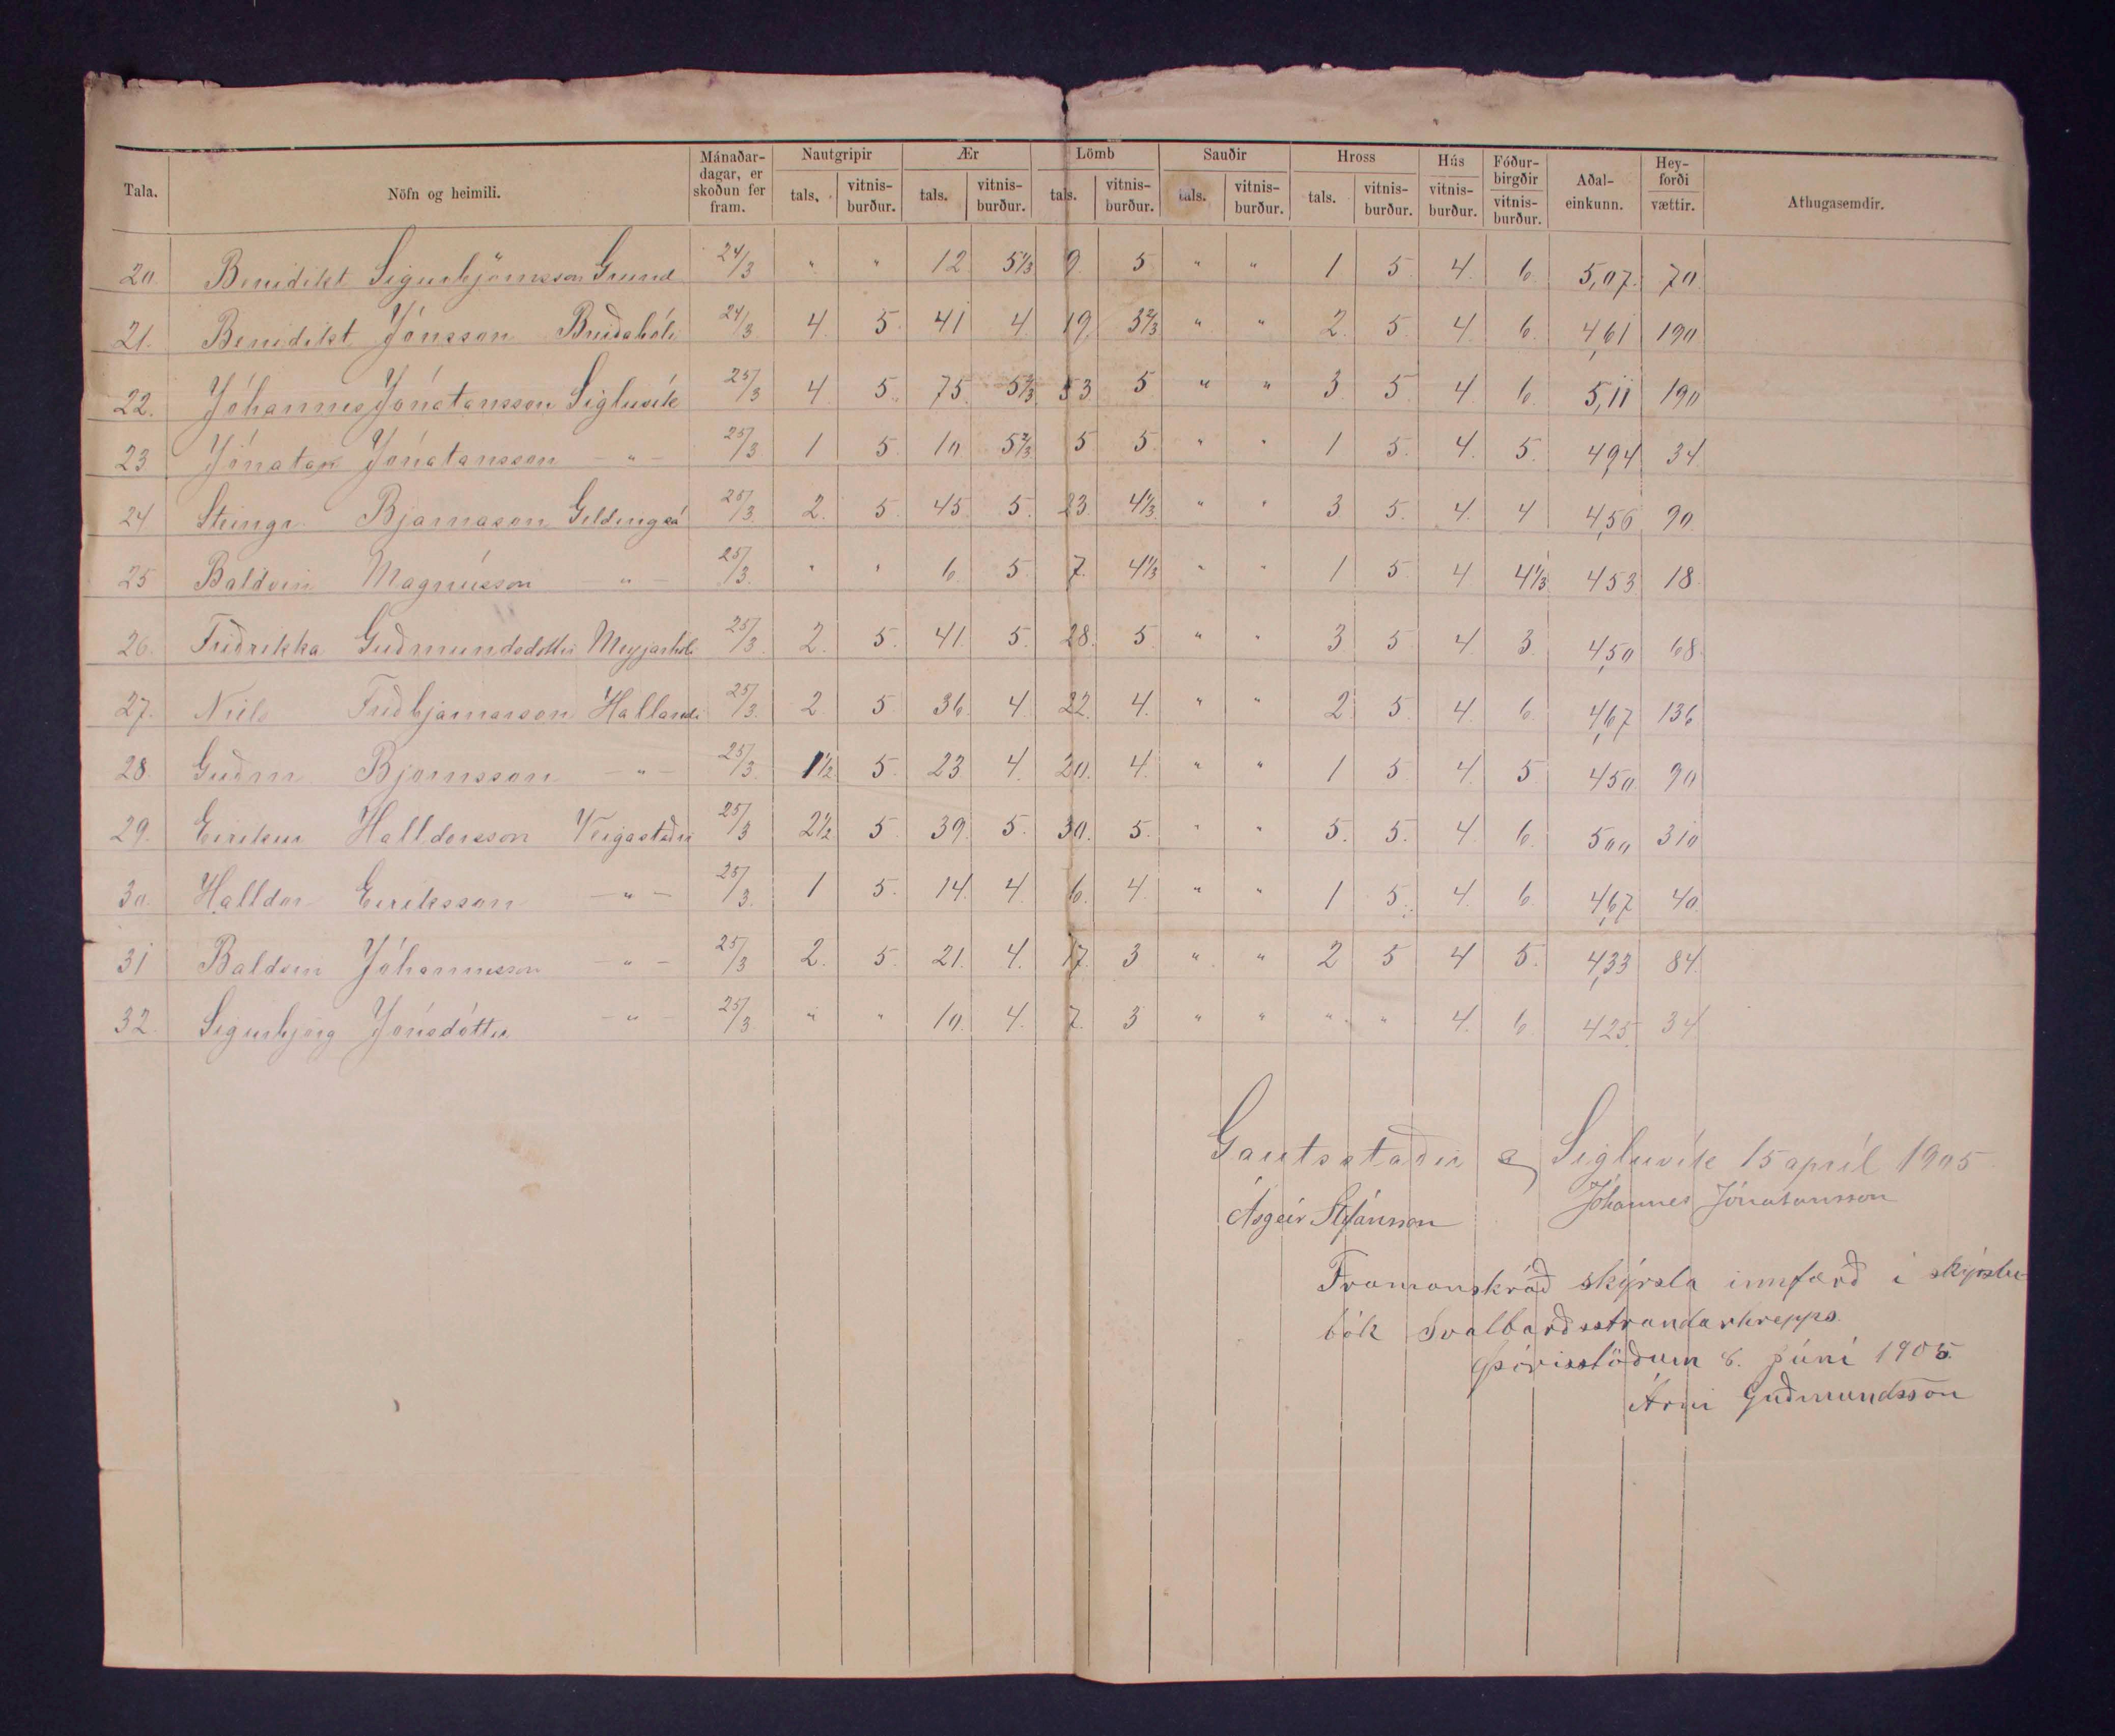 Tala. Nöfn og heimili. Mánaðar-dagar, er skoðun fer fram. Nautgripir tals. vitnis-burður. Ær tals. vitnis-burður. Lömb tals. vitnis-burður. Sauðir tals. vitnis-burður. Hross tals. vitnis-burður. Hús vitnis-burður. Fóður-birgðir vitnis-burður. Aðal-einkunn. Hey-forði vættir. Athugasemdir.
20. Benidikt Sigurbjörnsson Grund 24/3 " " 12 5 1/3 9. 5 " " 1 5. 4. 6. 5,07. 70
21. Benidikt Jónsson Breiðabóli 24/3. 4. 5. 41 4. 19. 3 2/3 " " 2. 5. 4 6. 4,61 190
22. Jóhannes Jónatansson Sigluvík 25/3 4 5. 75. 5 2/3. 53 5 " " 3. 5 4. 6. 5,11 190
23 Jónatan Jónatansson - " - 25/3. 1 5. 10 5 2/3. 5 5. " " 1 5. 4. 5. 4,94 34.
24 Steingr. Bjarnason Geldingsá 25/3. 2. 5. 45. 5. 23. 4 1/3. " " 3 5. 4. 4 4,56 90.
25 Baldvin Magnússon - " - 25/3. " " 6. 5. 7. 4 1/3 " " 1 5 4 4 1/3 453 18.
26. Friðrikka Guðmundsdóttir Meyjarhóli 25/3. 2. 5. 41. 5. 28. 5 " " 3 5 4. 3. 4,50 68.
27. Niels Friðbjarnarson Hallandi 25/3. 2 5. 36. 4. 22. 4. " " 2 5. 4. 6. 4,67 136
28 Guðm Bjornsson - " - 25/3. 1 1/2 5. 23 4. 20. 4. " " 1 5. 4. 5 450. 90
29. Eirikur Halldorsson Veigastöðu 25/3 2 1/2 5 39. 5. 30. 5. " " 5. 5. 4 6. 500 310
30. Halldor Eiriksson - " - 25/3. 1 5. 14. 4. 6. 4. " " 1 5. 4. 6. 4,67 40.
31 Baldvin Jóhannesson - " - 25/3 2. 5. 21. 4. 17. 3 " " 2 5 4 5. 4,33 84.
32. Sigurbjörg Jónsdóttir - " - 25/3 " " 10. 4. 7. 3 " " " " 4. 6. 425. 34.
Gautsstaðir og Sigluvík 15 apríl 1905
Ásgeir Stefánsson Jóhannes Jónatansson
Framanskráð skýrsla innfærð í skýrslu-
bók Svalbarðsstrandarhrepps.
Þórisstöðum 8. júní 1905.
Árni Guðmundsson